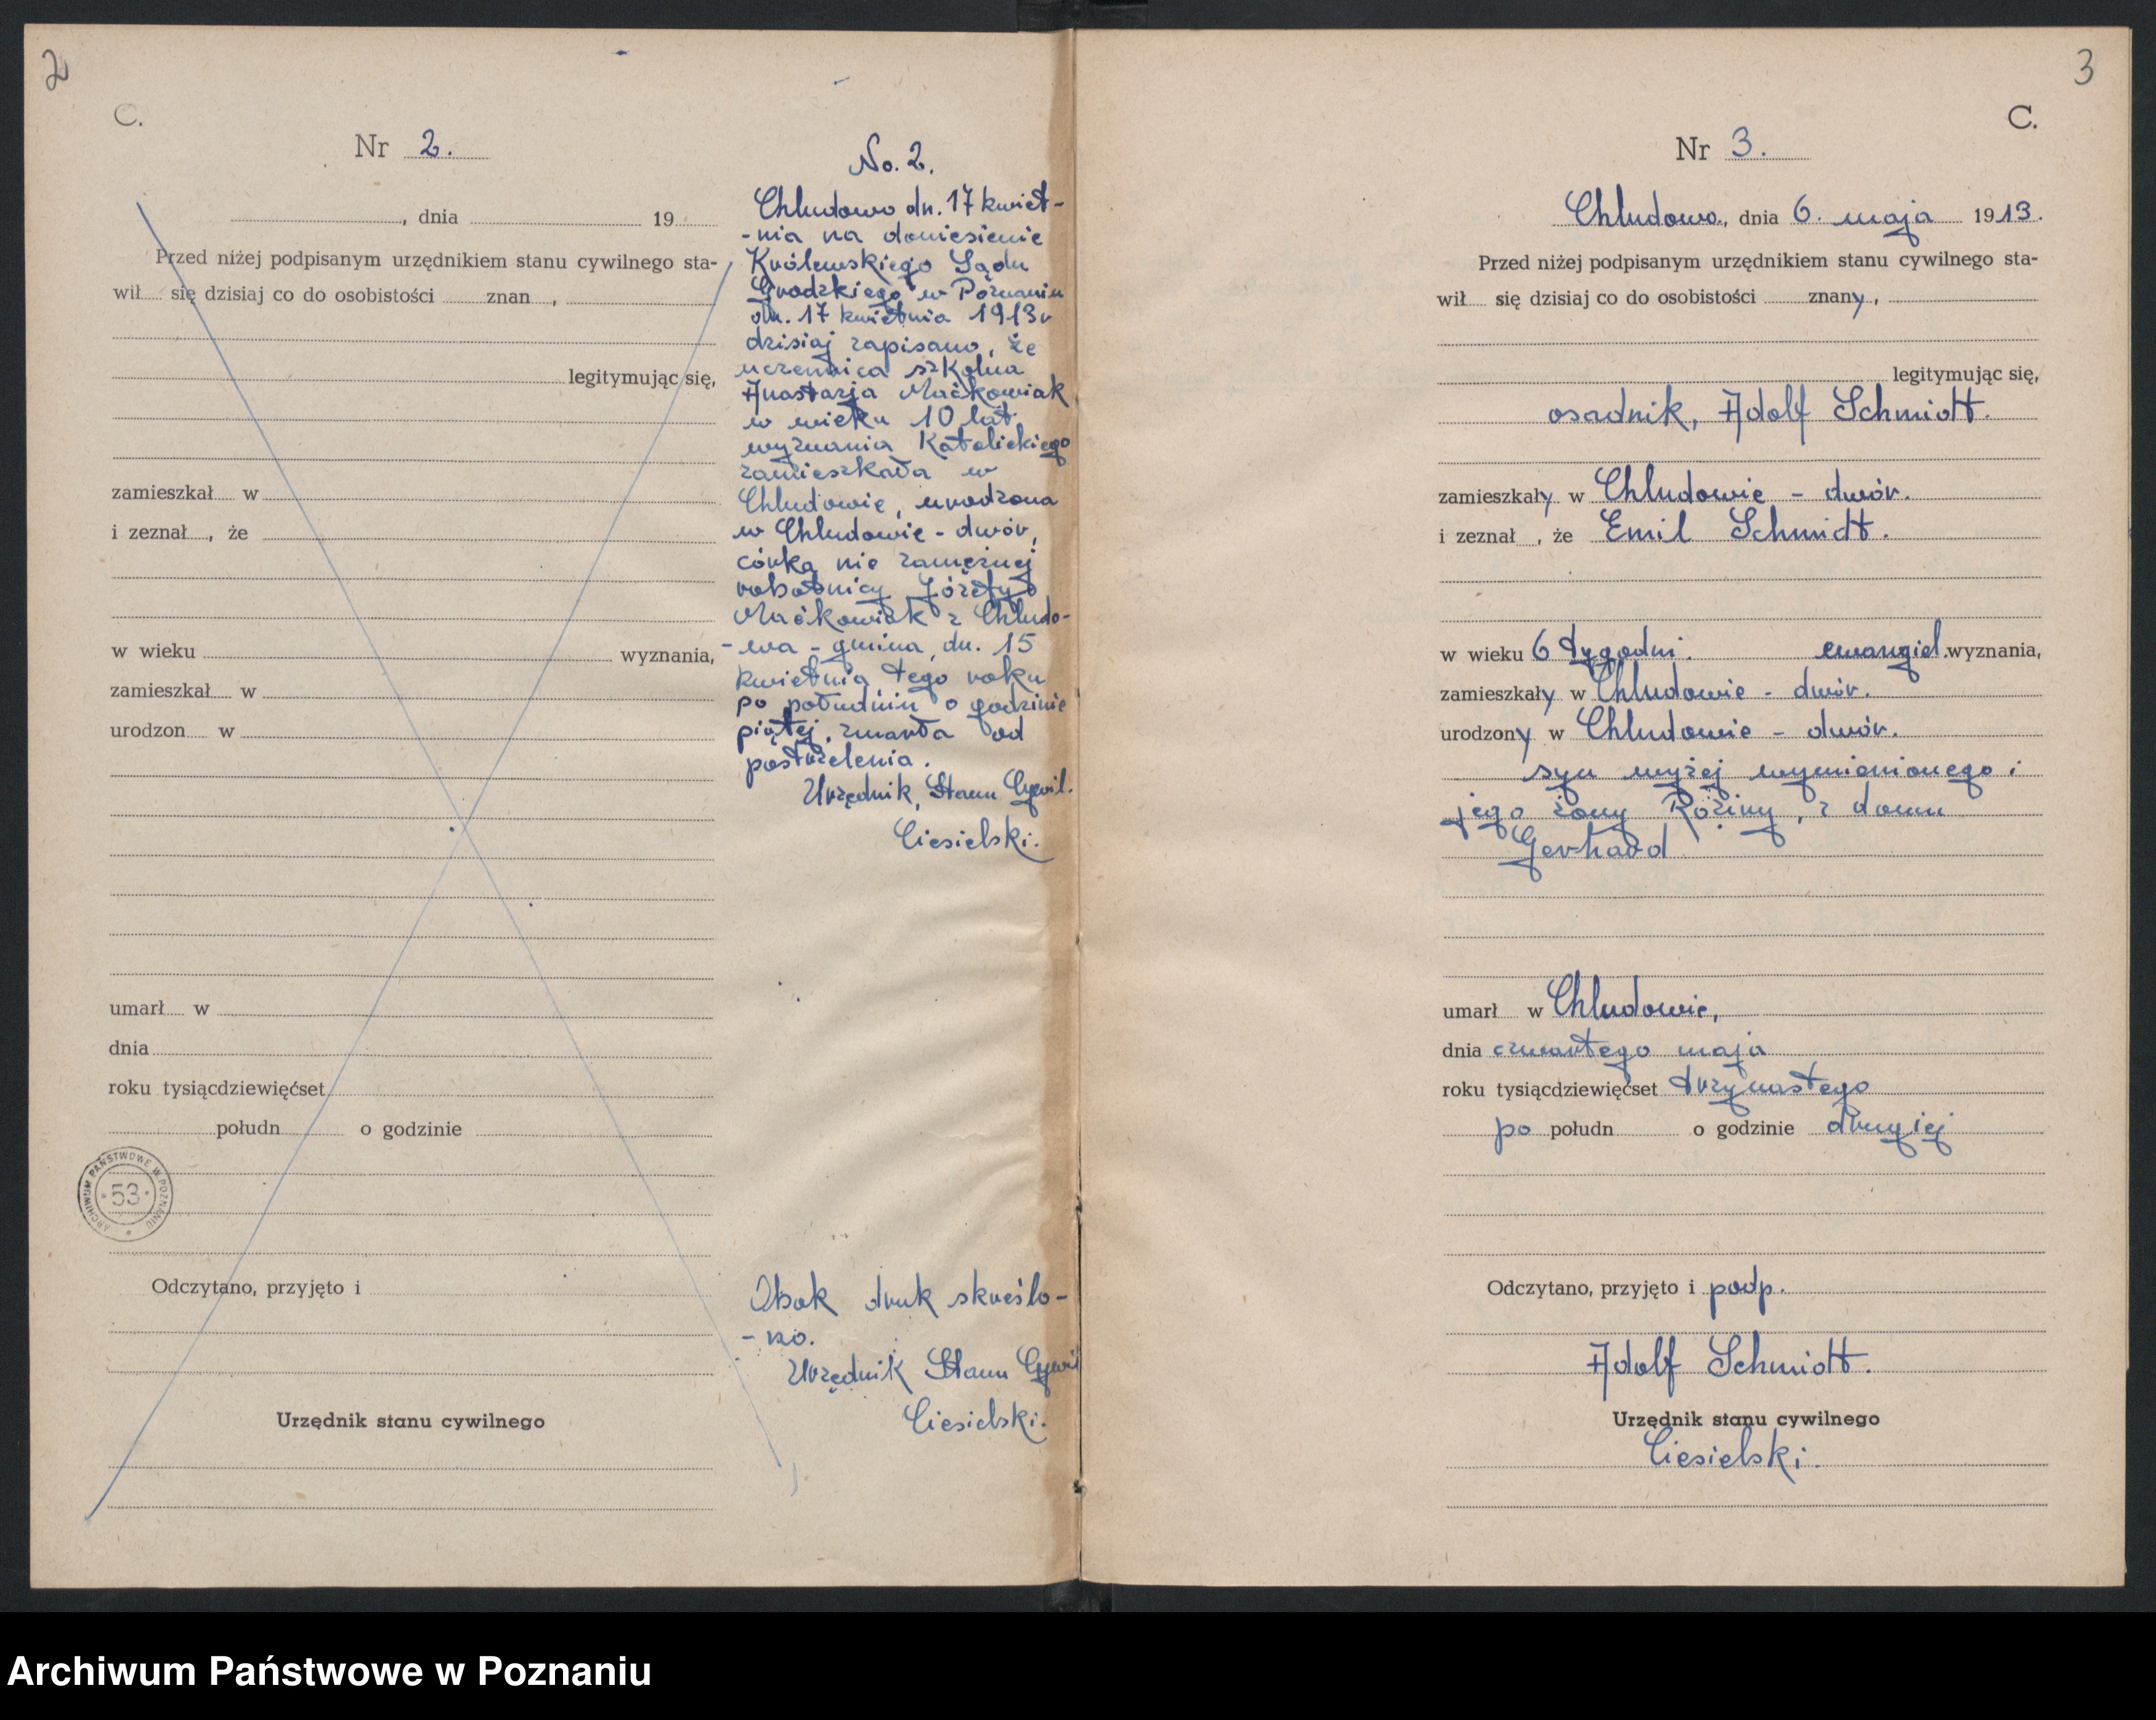 2
C.
Nr 2.
, dnia 19
Przed niżej podpisanym urzędnikiem stanu cywilnego sta-
wił się dzisiaj co do osobistości znan ,
legitymując się,
zamieszkał w
i zeznał , że
w wieku wyznania,
zamieszkał w
urodzon w
umarł w
dnia
roku tysiącdziewięćset
połudn o godzinie
Odczytano, przyjęto i
Urzędnik stanu cywilnego
ARCHIWUM PAŃSTWOWE W POZNANIU
53
No. 2.
Chludowo dn. 17 kwiet-
-nia na doniesienie
Królewskiego Sądu
Grodzkiego w Poznaniu
dn. 17 kwietnia 1913r
dzisiaj zapisano, że
uczennica szkolna
Anastazja Maćkowiak
w wieku 10 lat,
wyznania Katolickiego
zamieszkała w
Chludowie, urodzona
w Chludowie - dwór,
córka nie zamężnej
robotnicy Józefy
Maćkowiak z Chludo-
-wa - gmina, dn. 15
kwietnia tego roku
po południu o godzinie
piątej, zmarła od
postrzelenia.
Urzędnik, Stanu Cywil.
Ciesielski.
Obok druk skreślo-
-no.
Urzędnik Stanu Cywil
Ciesielski.
3
C.
Nr 3.
Chludowo, dnia 6. maja 1913.
Przed niżej podpisanym urzędnikiem stanu cywilnego sta-
wił się dzisiaj co do osobistości znany,
legitymując się,
osadnik, Adolf Schmidt.
zamieszkały w Chludowie - dwór.
i zeznał , że Emil Schmidt.
w wieku 6 tygodni. ewangiel. wyznania,
zamieszkały w Chludowie - dwór.
urodzony w Chludowie - dwór.
syn wyżej wymienionego i
jego żony Roziny, z domu
Gerhard
umarł w Chludowie,
dnia czwartego maja
roku tysiącdziewięćset trzynastego
po połudn o godzinie drugiej
Odczytano, przyjęto i podp.
Adolf Schmidt.
Urzędnik stanu cywilnego
Ciesielski.
Archiwum Państwowe w Poznaniu